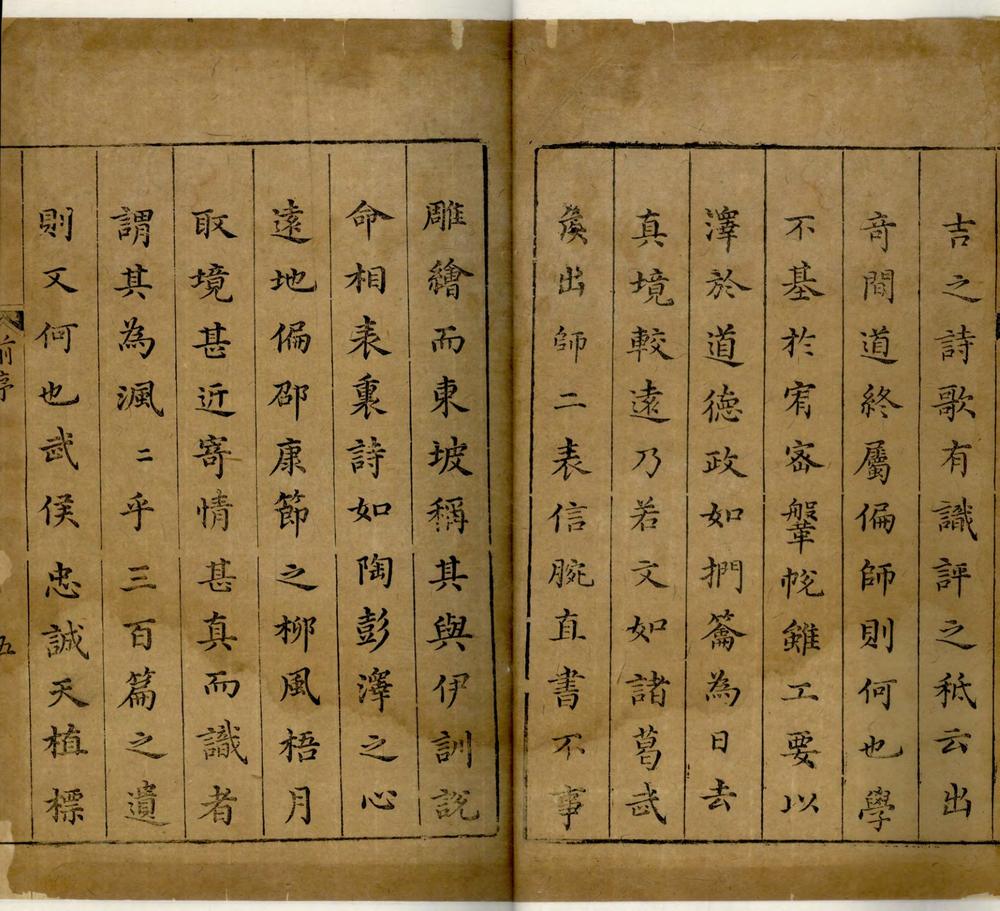 吉之詩歌有識評之秪云出
竒間道終屬偏師則何也學
不基於宥密鞶帨雖工要以
澤於道德政如捫籥為日去
真境較遠乃若文如諸葛武
矦出師二表信腕直書不事
雕繪而東坡稱其與伊訓說
命相表裏詩如陶彭澤之心
遠地偏邵康節之柳風梧月
取境甚近寄情甚真而識者
謂其為渢二乎三百篇之遺
則又何也武侯忠誠天植標
前序
五